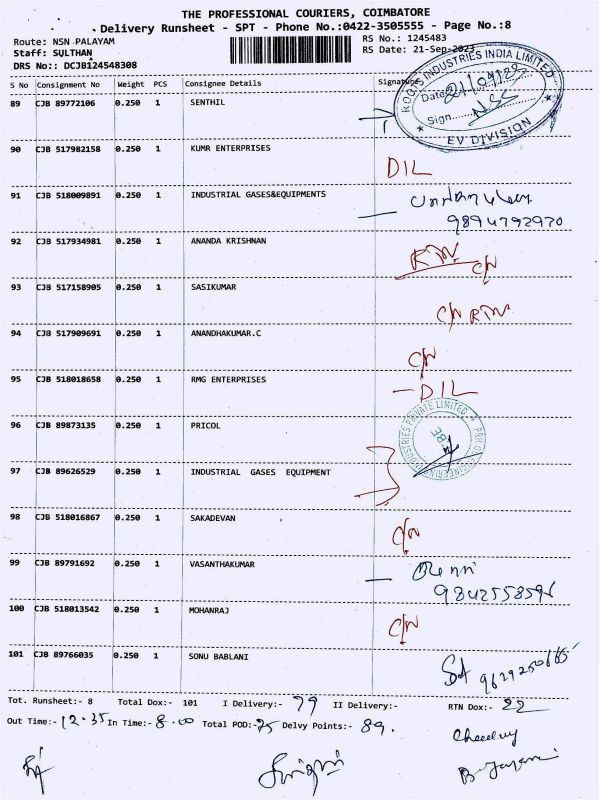 THE PROFESSIONAL COURIERS, COIMBATORE
Delivery Runsheet - SPT - Phone No.:0422-3505555 - Page No.:8
Route: NSN PALAYAM
RS No.: 1245483
Staff: SULTHAN
RS Date: 21-Sep-2023
DRS No:: DCJB124548308
S No Consignment No Weight PCS Consignee Details Signature
ROOTS INDUSTRIES INDIA LIMITED
Date 21/09/23
Sign.
EV DIVISION
89 CJB 89772106 0.250 1 SENTHIL
90 CJB 517982158 0.250 1 KUMR ENTERPRISES
DIL
91 CJB 518009891 0.250 1 INDUSTRIAL GASES&EQUIPMENTS
9894792970
92 CJB 517934981 0.250 1 ANANDA KRISHNAN
RTN C/N
93 CJB 517158905 0.250 1 SASIKUMAR
C/N RTN
94 CJB 517909691 0.250 1 ANANDHAKUMAR.C
C/N
95 CJB 518018658 0.250 1 RMG ENTERPRISES
- DIL
96 CJB 89873135 0.250 1 PRICOL
97 CJB 89626529 0.250 1 INDUSTRIAL GASES EQUIPMENT
98 CJB 518016867 0.250 1 SAKADEVAN
C/N
99 CJB 89791692 0.250 1 VASANTHAKUMAR
9842558596
100 CJB 518013542 0.250 1 MOHANRAJ
C/N
101 CJB 89766035 0.250 1 SONU BABLANI
Tot. Runsheet:- 8 Total Dox:- 101 I Delivery:- 79 II Delivery:- RTN Dox:- 22
Out Time:- 12.35 In Time:- 8.00 Total POD:- 75 Delvy Points:- 89.